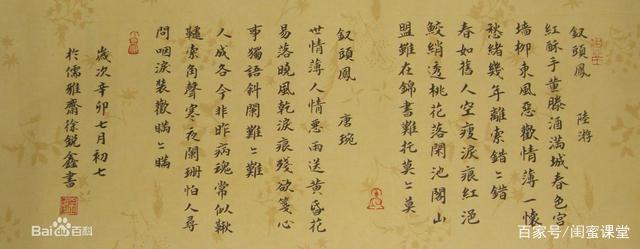 釵頭鳳 陸游
紅酥手黃滕酒滿城春色宮
墻柳東風惡歡情薄一懷
愁緒幾年離索錯〻錯
春如舊人空瘦淚痕紅浥
鮫綃透桃花落閑池閣山
盟雖在錦書難托莫〻莫
釵頭鳳 唐琬
世情薄人情惡雨送黃昏花
易落曉風乾淚痕殘欲箋心
事獨語斜闌難〻難
人成各今非昨病魂常似鞦
韆索角聲寒夜闌珊怕人尋
問咽淚裝歡瞞〻瞞
歲次辛卯七月初七
於儒雅齋徐銳鑫書
Bai百科
百家号/闺蜜课堂